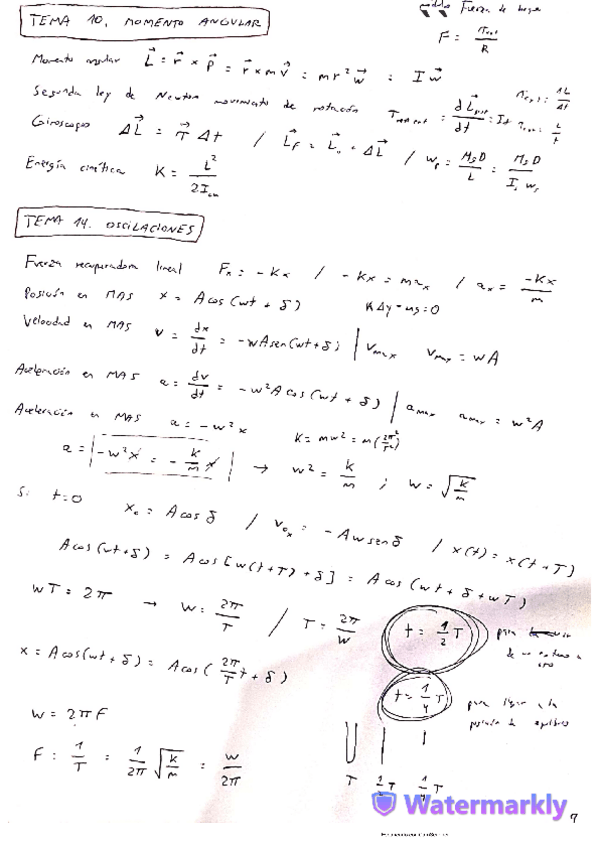 TEMA 10. MOMENTO ANGULAR
Fuerza de
F = / R
Momento angular L⃗ = r⃗ × p⃗ = r⃗ × m v⃗ = m r² w⃗ = I w⃗
Segunda ley de Newton movimiento de rotación = dL⃗ / dt
Giroscopo ΔL⃗ = τ⃗ Δt / L⃗f = L⃗o + ΔL⃗ / wp = MgD / L = MgD / Is ws
Energía cinética K = L² / 2Icm
TEMA 14. OSCILACIONES
Fuerza recuperadora lineal Fx = -Kx / -Kx = m ax / ax = -Kx / m
Posición en MAS x = A cos(wt + δ) KΔy - mg = 0
Velocidad en MAS v = dx/dt = -wA sen(wt + δ) | vmax vmax = wA
Aceleración en MAS a = dv/dt = -w²A cos(wt + δ) | amax amax = w²A
Aceleración en MAS a = -w²x K = mw² = m(2π²/T²)
a = |-w²x = - K/m x| → w² = K/m ; w = √(K/m)
Si t=0 xo = A cos δ / vox = -Aw sen δ / x(t) = x(t+T)
A cos(wt+δ) = A cos[w(t+T) + δ] = A cos(wt + δ + wT)
wT = 2π → w = 2π/T / T = 2π/w
t = 1/2 T para
de un extremo a
otro
x = A cos(wt + δ) = A cos(2π/T t + δ)
t = 1/4 T para llegar a la
posición de equilibrio
w = 2πF
F = 1/T = 1/2π √(K/m) = w/2π
T 1/2 T 1/4 T
Watermarkly
9